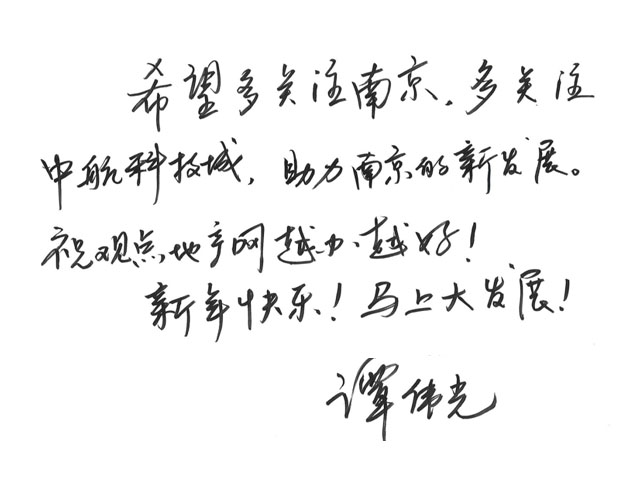 希望多关注南京，多关注
中航科技城，助力南京的新发展。
祝观点地产网越办越好！
新年快乐！马上大发展！
谭伟光